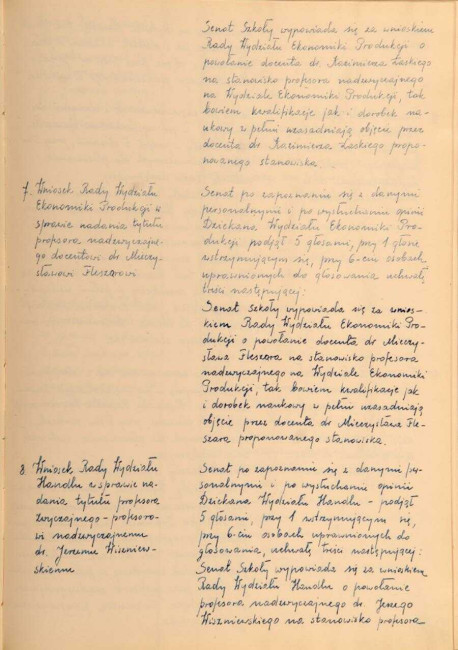 Senat Szkoły wypowiada się za wnioskiem
Rady Wydziału Ekonomiki Produkcji o
powołanie docenta dr. Kazimierza Łaskiego
na stanowisko profesora nadzwyczajnego
na Wydziale Ekonomiki Produkcji, tak
bowiem kwalifikacje jak i dorobek na-
ukowy w pełni uzasadniają objęcie przez
docenta dr Kazimierza Łaskiego propo-
nowanego stanowiska.
7. Wniosek Rady Wydziału
Ekonomiki Produkcji w
sprawie nadania tytułu
profesora nadzwyczajne-
go docentowi dr Mieczy-
sławowi Fleszarowi
Senat po zapoznaniu się z danymi
personalnymi i po wysłuchaniu opinii
Dziekana Wydziału Ekonomiki Pro-
dukcji podjął 5 głosami, przy 1 głosie
wstrzymującym się, przy 6-ciu osobach
uprawnionych do głosowania uchwałę
treści następującej:
Senat Szkoły wypowiada się za wnios-
kiem Rady Wydziału Ekonomiki Pro-
dukcji o powołanie docenta dr Mieczy-
sława Fleszara na stanowisko profesora
nadzwyczajnego na Wydziale Ekonomiki
Produkcji, tak bowiem kwalifikacje jak
i dorobek naukowy w pełni uzasadniają
objęcie przez docenta dr Mieczysława Fle-
szara proponowanego stanowiska.
8 Wniosek Rady Wydziału
Handlu w sprawie na-
dania tytułu profesora
zwyczajnego - profesoro-
wi nadzwyczajnemu
dr. Jerzemu Wiszniew-
skiemu
Senat po zapoznaniu się z danymi per-
sonalnymi i po wysłuchaniu opinii
Dziekana Wydziału Handlu - podjął
5 głosami, przy 1 wstrzymującym się,
przy 6-ciu osobach uprawnionych do
głosowania, uchwałę treści następującej:
Senat Szkoły wypowiada się za wnioskiem
Rady Wydziału Handlu o powołanie
profesora nadzwyczajnego dr. Jerzego
Wiszniewskiego na stanowisko profesora